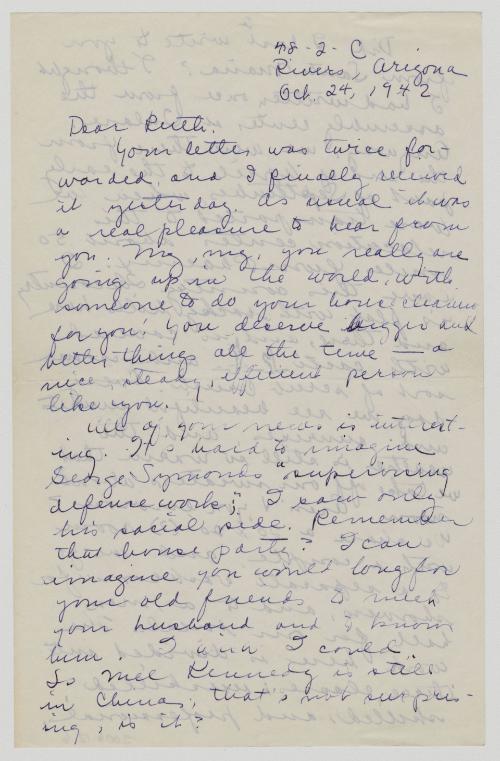 48-2-C
Rivers, Arizona
Oct 24, 1942
Dear Ruth:
Your letter was twice for-
warded, and I finally received
it yesterday. As usual it was
a real pleasure to hear from
you. My, my, you really are
going up in the world, with
someone to do your house cleaning
for you! You deserve bigger and
better things all the time — a
nice steady, efficient person
like you.
All of your news is interest-
ing. It's hard to imagine
George Symonds "supervising
defense work"; I saw only
his social side. Remember
that house party? I can
imagine you would long for
your old friends to meet
your husband and to know
him. I wish I could.
So Mel Kennedy is still
in China; that's not surpris-
ing, is it?